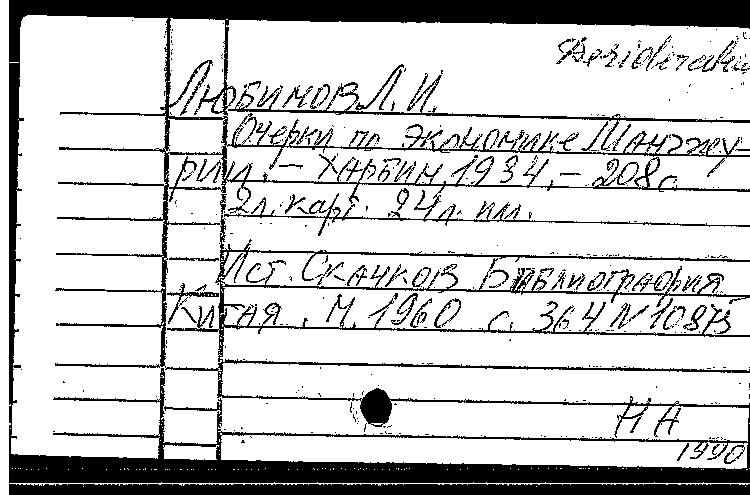 Desiderata
Любимов Л. И.
Очерки по экономике Манчжу-
рии. – Харбин, 1934. – 208 с.
2 л. карт. 24 л. илл.
Ист. Скачков Библиография
Китая. М. 1960 с. 364 № 10873
НА
1990